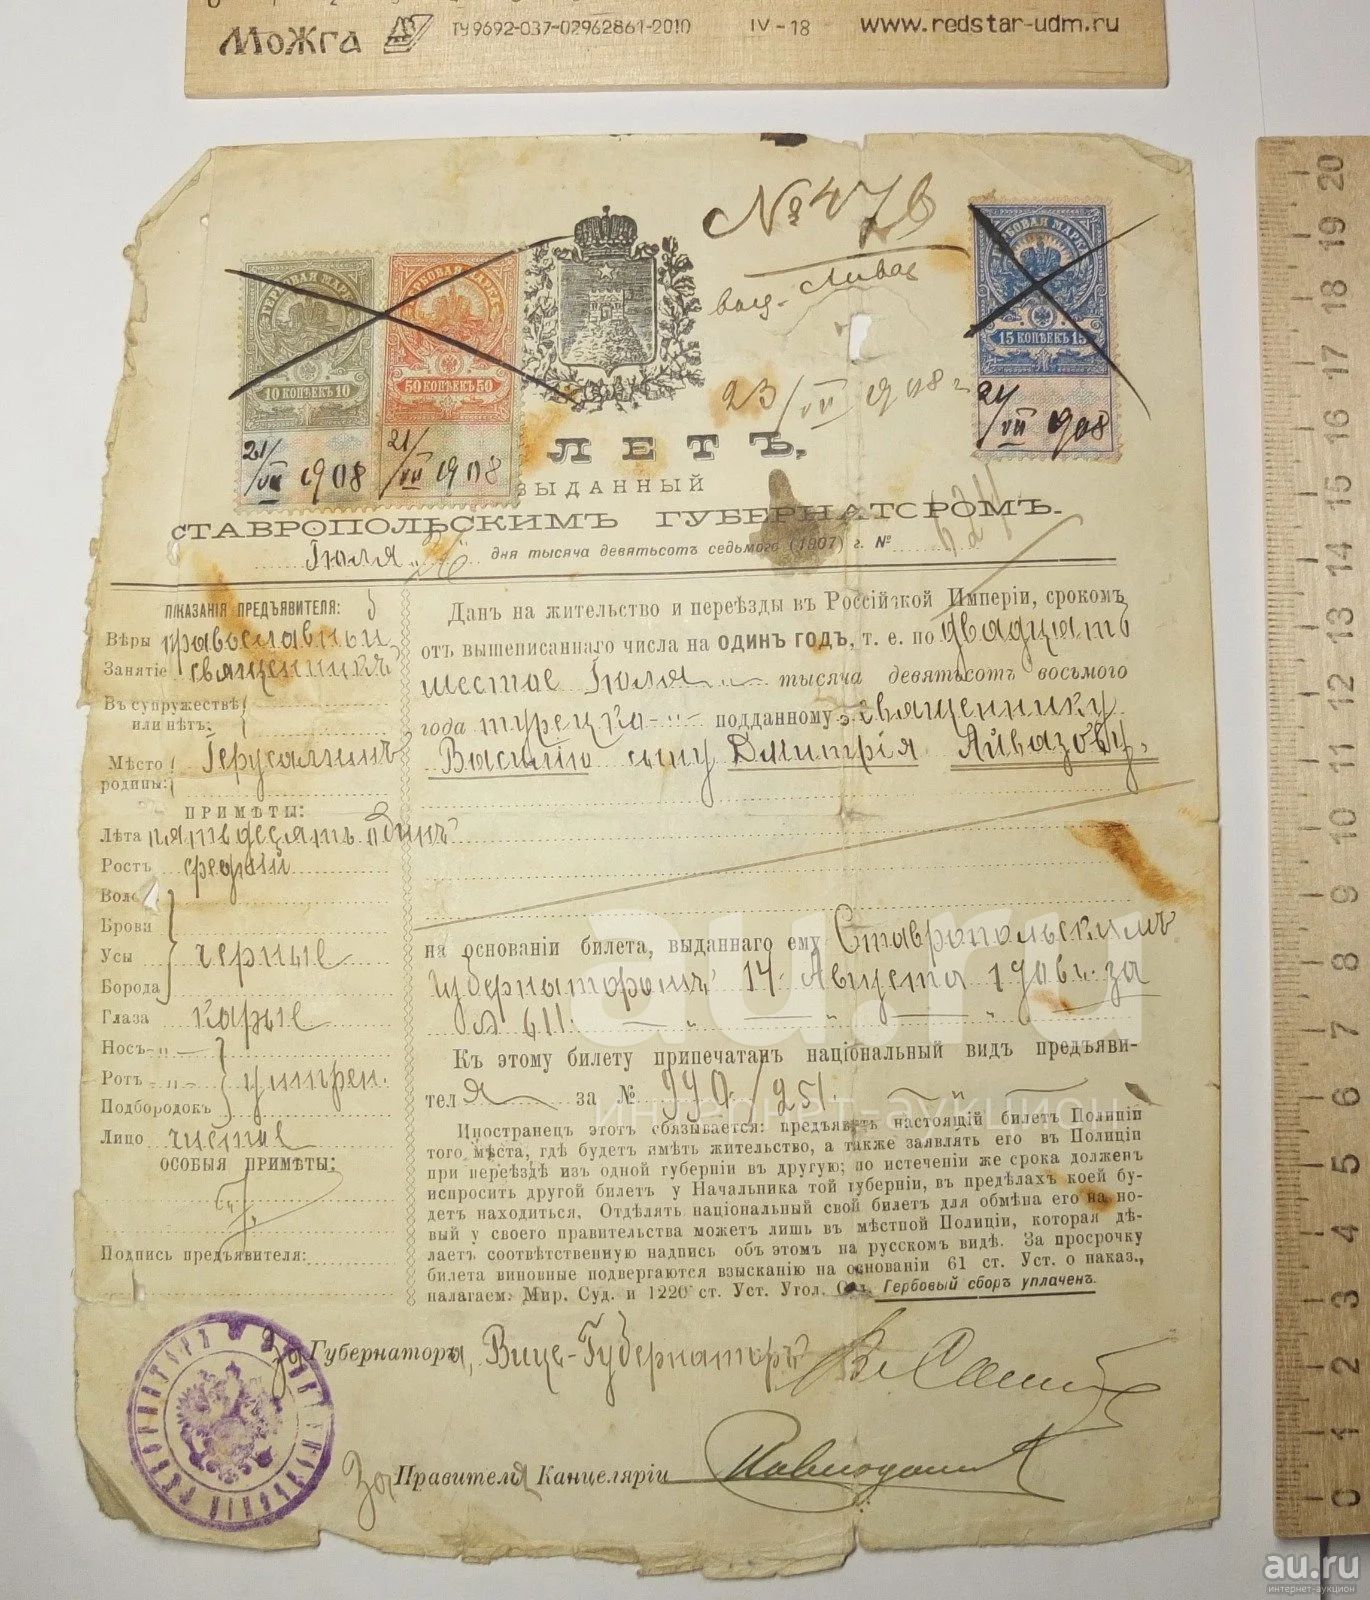 МОЖГА ТУ 9692-037-02962861-2010 IV-18 www.redstar-udm.ru
№ 476
23/VII 1908 г.
ГЕРБОВАЯ МАРКА
10 КОПѢЕКЪ 10
21/VII 1908
ГЕРБОВАЯ МАРКА
50 КОПѢЕКЪ 50
21/VII 1908
ГЕРБОВАЯ МАРКА
15 КОПѢЕКЪ 15
21/VII 1908
ЛЕТЪ,
ВЫДАННЫЙ
СТАВРОПОЛЬСКИМЪ ГУБЕРНАТОРОМЪ.
Іюля „26 дня тысяча девятьсотъ седьмого (1907) г. №
ПОКАЗАНІЯ ПРЕДЪЯВИТЕЛЯ:
Вѣры православный
Занятіе священникъ
Въ супружествѣ
или нѣтъ:
Мѣсто родины: Іерусалимъ
ПРИМѢТЫ:
Лѣта пятьдесятъ одинъ
Ростъ средній
Воло
Брови
Усы черные
Борода
Глаза карые
Носъ „
Ротъ „ умѣрен.
Подбородокъ
Лицо чистое
ОСОБЫЯ ПРИМѢТЫ:
Подпись предъявителя:
Данъ на жительство и переѣзды въ Россійской Имперіи, срокомъ
отъ вышеписаннаго числа на ОДИНЪ ГОДЪ, т. е. по двадцать
шестое Іюля „ тысяча девятьсотъ восьмого
года турецко „ подданному священнику
Василію сыну Дмитрія Айвазову.
на основаніи билета, выданнаго ему Ставропольскимъ
Губернаторомъ 14 Августа 1906 г. за
№ 611.
Къ этому билету припечатанъ національный видъ предъяви-
теля за № 990/251.
Иностранецъ этотъ обязывается: предъявить настоящій билетъ Полиціи
того мѣста, гдѣ будетъ имѣть жительство, а также заявлять его въ Полиціи
при переѣздѣ изъ одной губерніи въ другую; по истеченіи же срока долженъ
испросить другой билетъ у Начальника той губерніи, въ предѣлахъ коей бу-
детъ находиться. Отдѣлять національный свой билетъ для обмѣна его на но-
вый у своего правительства можетъ лишь въ мѣстной Полиціи, которая дѣ-
лаетъ соотвѣтственную надпись объ этомъ на русскомъ видѣ. За просрочку
билета виновные подвергаются взысканію на основаніи 61 ст. Уст. о наказ.,
налагаем. Мир. Суд. и 1220 ст. Уст. Угол. Суд. Гербовый сборъ уплаченъ.
За Губернатора, Вице-Губернаторъ
За Правителя Канцеляріи
au.ru
интернет-аукцион
au.ru
интернет-аукцион